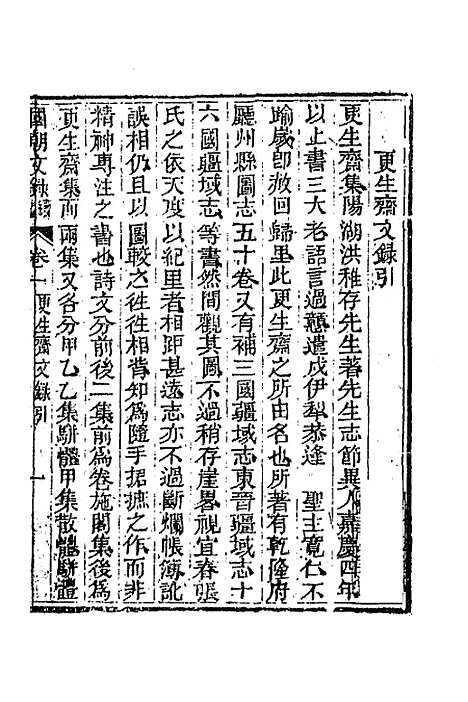 更生齋文録引
更生齋集陽湖洪稚存先生著先生志節異人嘉慶四年
以上書三大老語言過戇遣戍伊犁恭逢　聖主寬仁不
踰歲卽赦回歸里此更生齋之所由名也所著有乾隆府
廳州縣圖志五十卷又有補三國疆域志東晉疆域志十
六國疆域志等書然間觀其圖不過稍存崖畧視宜春張
氏之依天度以紀里者相距甚遠志亦不過斷爛帳簿訛
誤相仍且以圖較之徃徃相背知爲隨手捃摭之作而非
精神專注之書也詩文分前後二集前爲卷施閣集後爲
更生齋集而兩集又各分甲乙乙集駢體甲集散體駢體
國朝文録續　卷一更生齋文録引　一